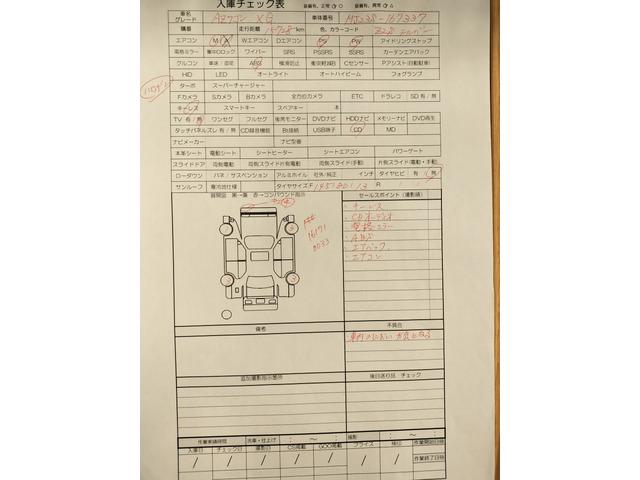 入庫チェック表 装備有、正常 ○ 装備有、異常 △
車名 グレード AZワゴン XG 車体番号 MJ23S-167337
積番 走行距離 km 色、カラーコード Z2S シルバー
エアコン M/A Wエアコン Dエアコン PS PW アイドリングストップ
電格ミラー 集中ロック ワイパー SRS PSSRS SSRS カーテンエアバック
クルコン 車速/追従 ABS 横滑防止 衝突軽減B Cセンサー Pアシスト(自動駐車)
HID LED オートライト オートハイビーム フォグランプ
ターボ スーパーチャージャー
Fカメラ Sカメラ Bカメラ 全方位カメラ ETC ドラレコ SD有/無
キーレス スマートキー スペアキー 本
TV有/無 ワンセグ フルセグ 後席モニター DVDナビ HDDナビ メモリーナビ DVD再生
タッチパネルズレ有/無 CD録音機能 Bt接続 USB端子 CD MD
ナビメーカー ナビ型番
本革シート 電動シート シートヒーター シートエアコン パワーゲート
スライドドア 両側電動 片側スライド片側電動 両側スライド(手動) 片側スライド(電動・手動)
ローダウン バネ/サスペンション アルミホイル 社外/純正 インチ タイヤヒビ 有/無
サンルーフ 寒冷地仕様 タイヤサイズF R
展開図 黒→傷 赤→コンパウンド指示 セールスポイント(撮影順)
・キーレス
・CDオーディオ
・電格ミラー
・ABS
・エアバック
・エアコン
備考 不具合
追加撮影指示箇所 後日送り品 チェック
作業実績時間 洗車・仕上げ : ～ : 撮影 : ～ : 作業開始日時
入庫日 チェック日 撮影日 CS掲載 GOO掲載 プライス 検印
/ / / / / / / 作業終了日時